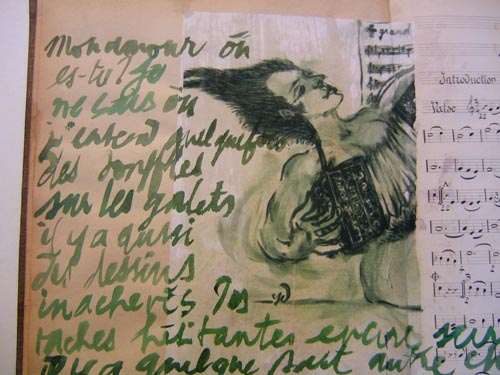 Mon amour où
es-tu? Je
ne sais où
j'entend quelquefois
des souffles
sur les galets
il y a aussi
des dessins
inachevés Des
taches hésitantes encre
il y a quelque part autre
grand
Introduction
Valse